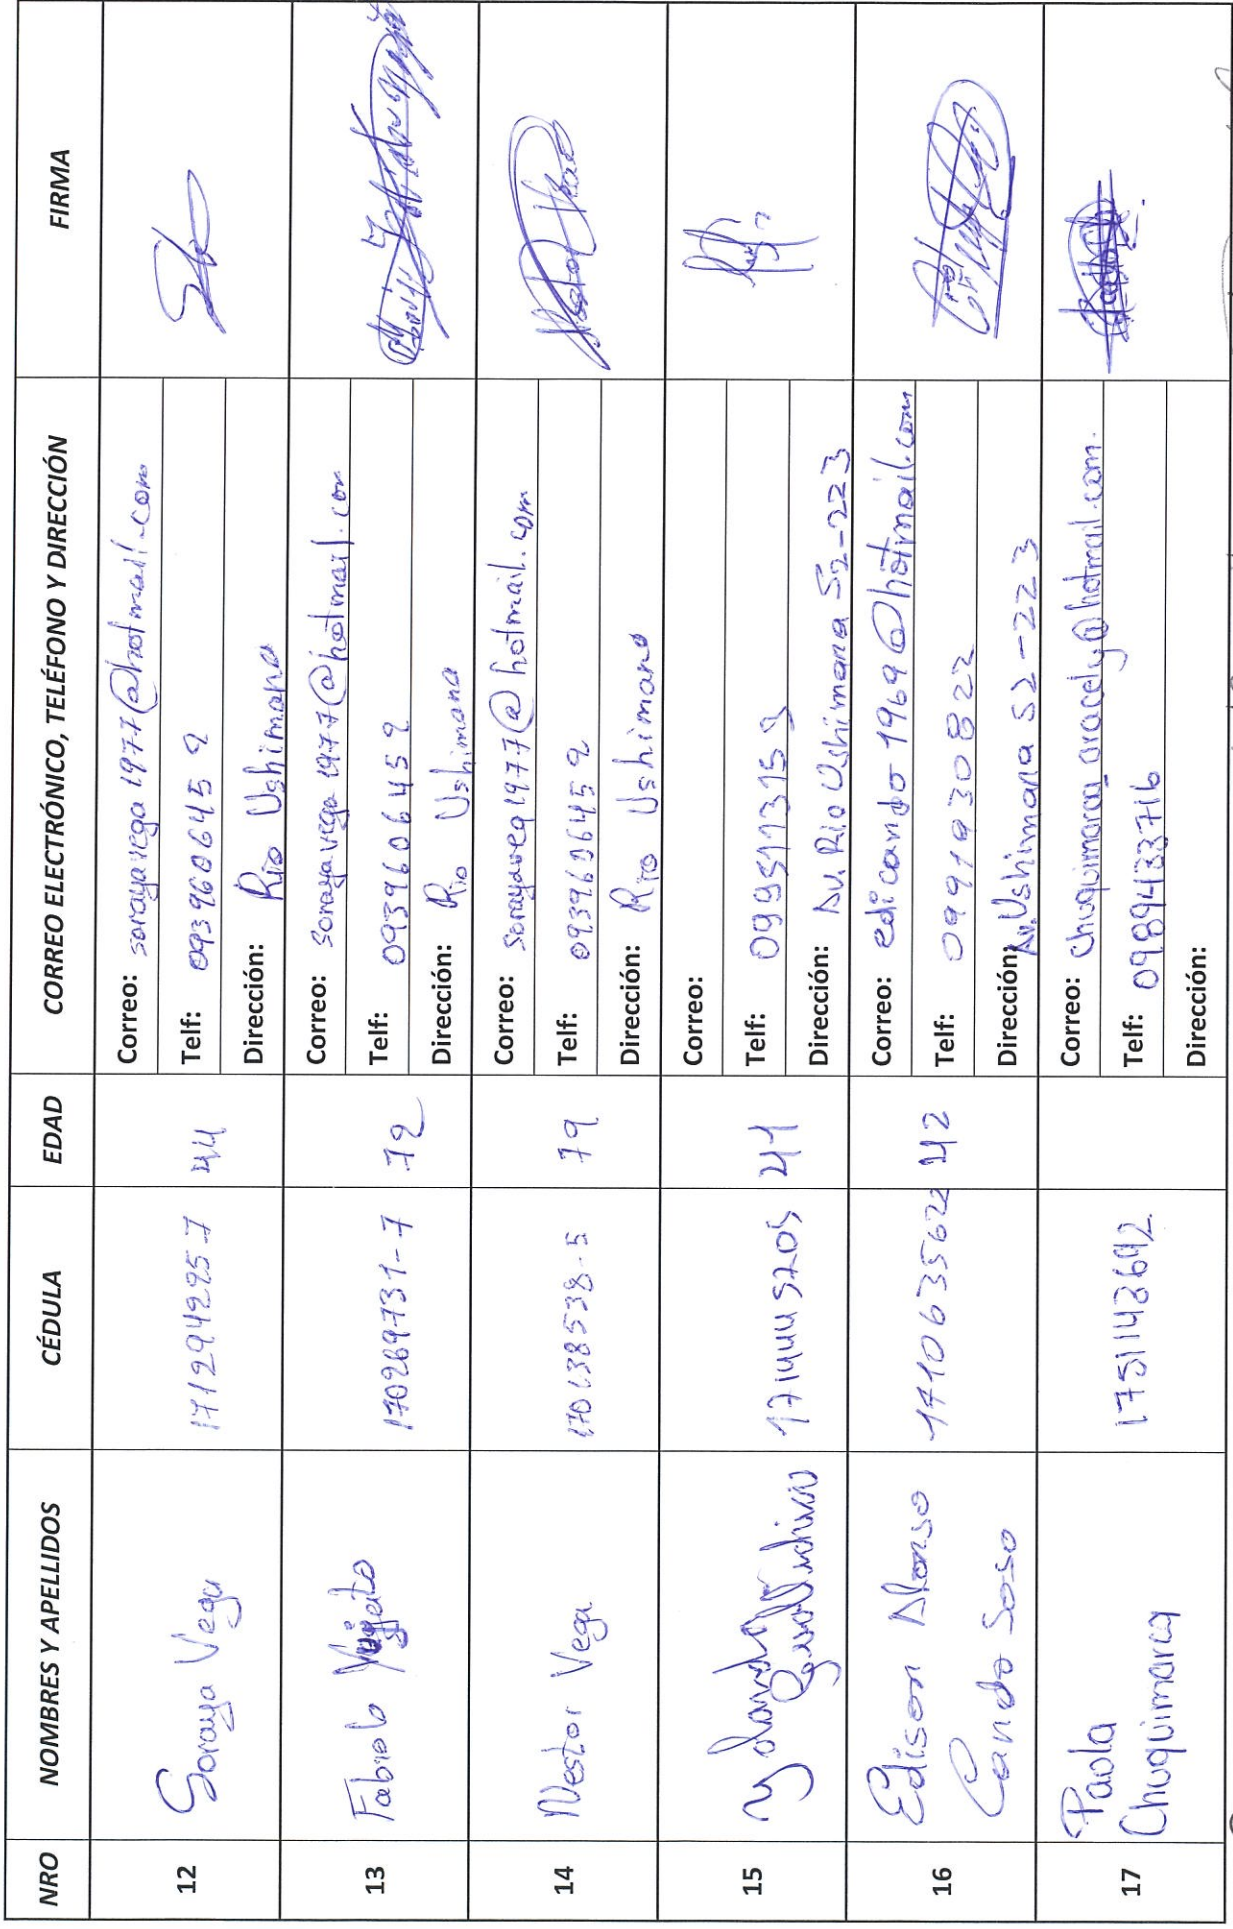 NRO NOMBRES Y APELLIDOS CÉDULA EDAD CORREO ELECTRÓNICO, TELÉFONO Y DIRECCIÓN FIRMA
12 Soraya Vega 171294295-7 44
Correo: sorayavega1977@hotmail.com
Telf: 0939606459
Dirección: Rio Ushimana
13 Fabiola 170269731-7 72
Correo: sorayavega1977@hotmail.com
Telf: 0939606459
Dirección: Rio Ushimana
14 Nestor Vega 170138538-5 79
Correo: sorayaveg1977@hotmail.com
Telf: 0939606459
Dirección: Rio Ushimana
15 Yolanda 1714445205 41
Correo:
Telf: 0995173159
Dirección: Av. Rio Ushimana S2-223
16 Edison Alonso
Cando Soso
1710635622 42
Correo: edicando1969@hotmail.com
Telf: 0991930822
Dirección: Av. Ushimana S2-223
17 Paola
Chuquimarca
1751143692
Correo: chuquimarca_aracely@hotmail.com.
Telf: 0989433716
Dirección: